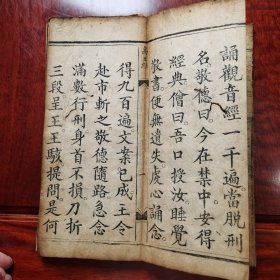 誦觀音經一千遍當脫刑
名敬德曰今在禁中安得
經典僧曰吾口授汝睡覺
裝書便無遺失虔心誦念
得九百遍文案已成王令
赴市斬之敬德隨路急念
滿數行刑身首不損刀折
三段呈王王駭提問是何